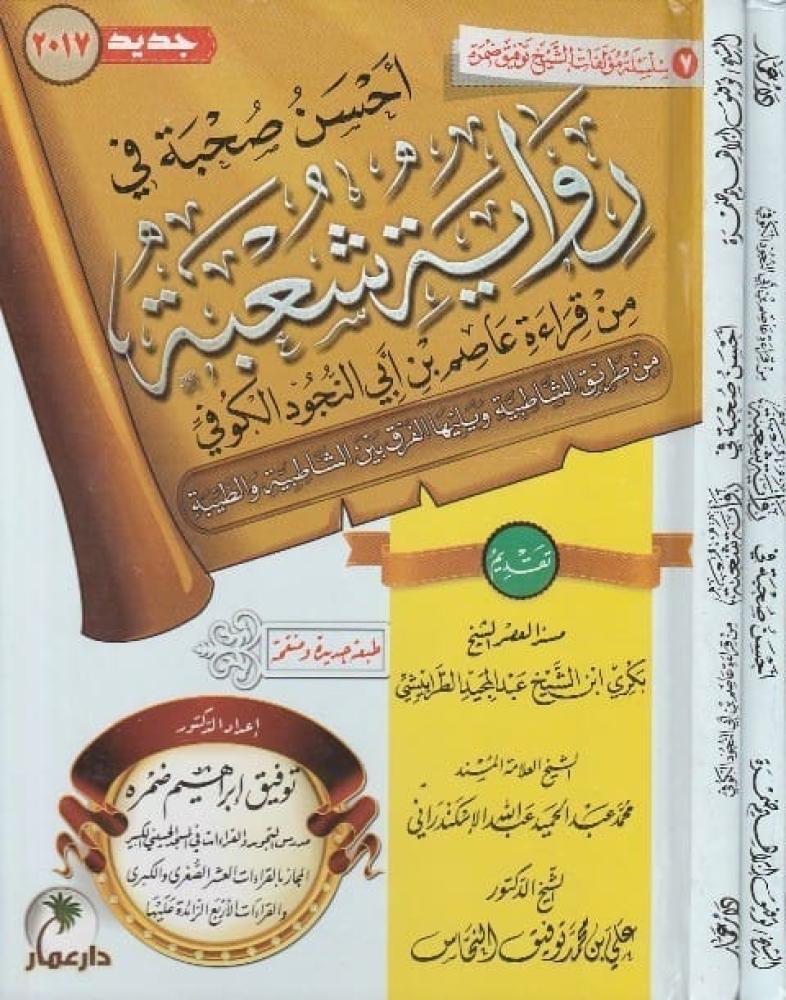 جديد ٢٠١٧
٧ سلسلة مؤلفات الشيخ توفيق ضمرة
أَحْسَنُ صُحْبَة في
رِوَايَةِ شُعْبَةُ
مِنْ قِرَاءَةِ عَاصِم بْنِ أَبي النَّجُود الكُوفيِّ
من طريق الشاطبية ويليها الفرق بين الشاطبية والطيبة
تقديم
مسند العصر الشيخ
بكري ابن الشيخ عبد المجيد الطرابيشي
الشيخ العلامة المسند
محمد عبد الحميد عبد الله الإسكندراني
الشيخ الدكتور
علي بن محمد توفيق النحاس
طبعة جديدة ومنقحة
إعداد الدكتور
توفيق إبراهيم ضمره
مدرس التجويد والقراءات في المسجد الحسيني الكبير
المجاز بالقراءات العشر الصغرى والكبرى
والقراءات الأربع الزائدة عليها
دار عمار
الشيخ توفيق إبراهيم ضمرة
أحسن صحبة في
رواية شعبة
من قراءة عاصم بن أبي النجود الكوفي
دار عمار
دار عمار
من قراءة عاصم بن أبي النجود الكوفي
رواية شعبة
أحسن صحبة في
الشيخ توفيق إبراهيم ضمرة